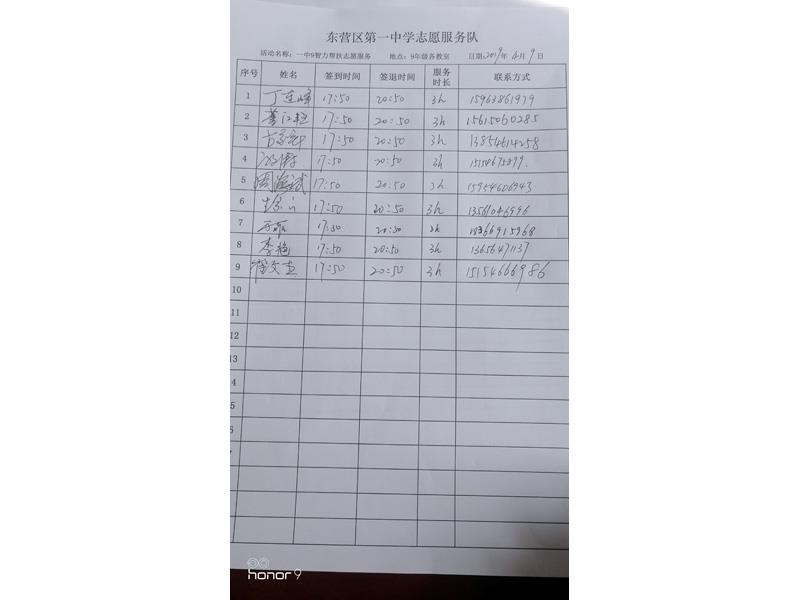 东营区第一中学志愿服务队
活动名称：一中9智力帮扶志愿服务 地点：9年级各教室 日期：2019年 4月 9日
序号 姓名 签到时间 签退时间 服务时长 联系方式
1 丁连峰 17:50 20:50 3h 15963861979
2 17:50 20:50 3h 15615060285
3 17:50 20:50 3h 13854614258
4 17:50 20:50 3h
5 周海斌 17:50 20:50 3h 15954606943
6 17:50 20:50 3h 13561046996
7 20:50
8 李艳 17:50 20:50 3h 13656471137
9 17:50 20:50 3h 15154666986
10
11
12
13
4
5
6
honor 9